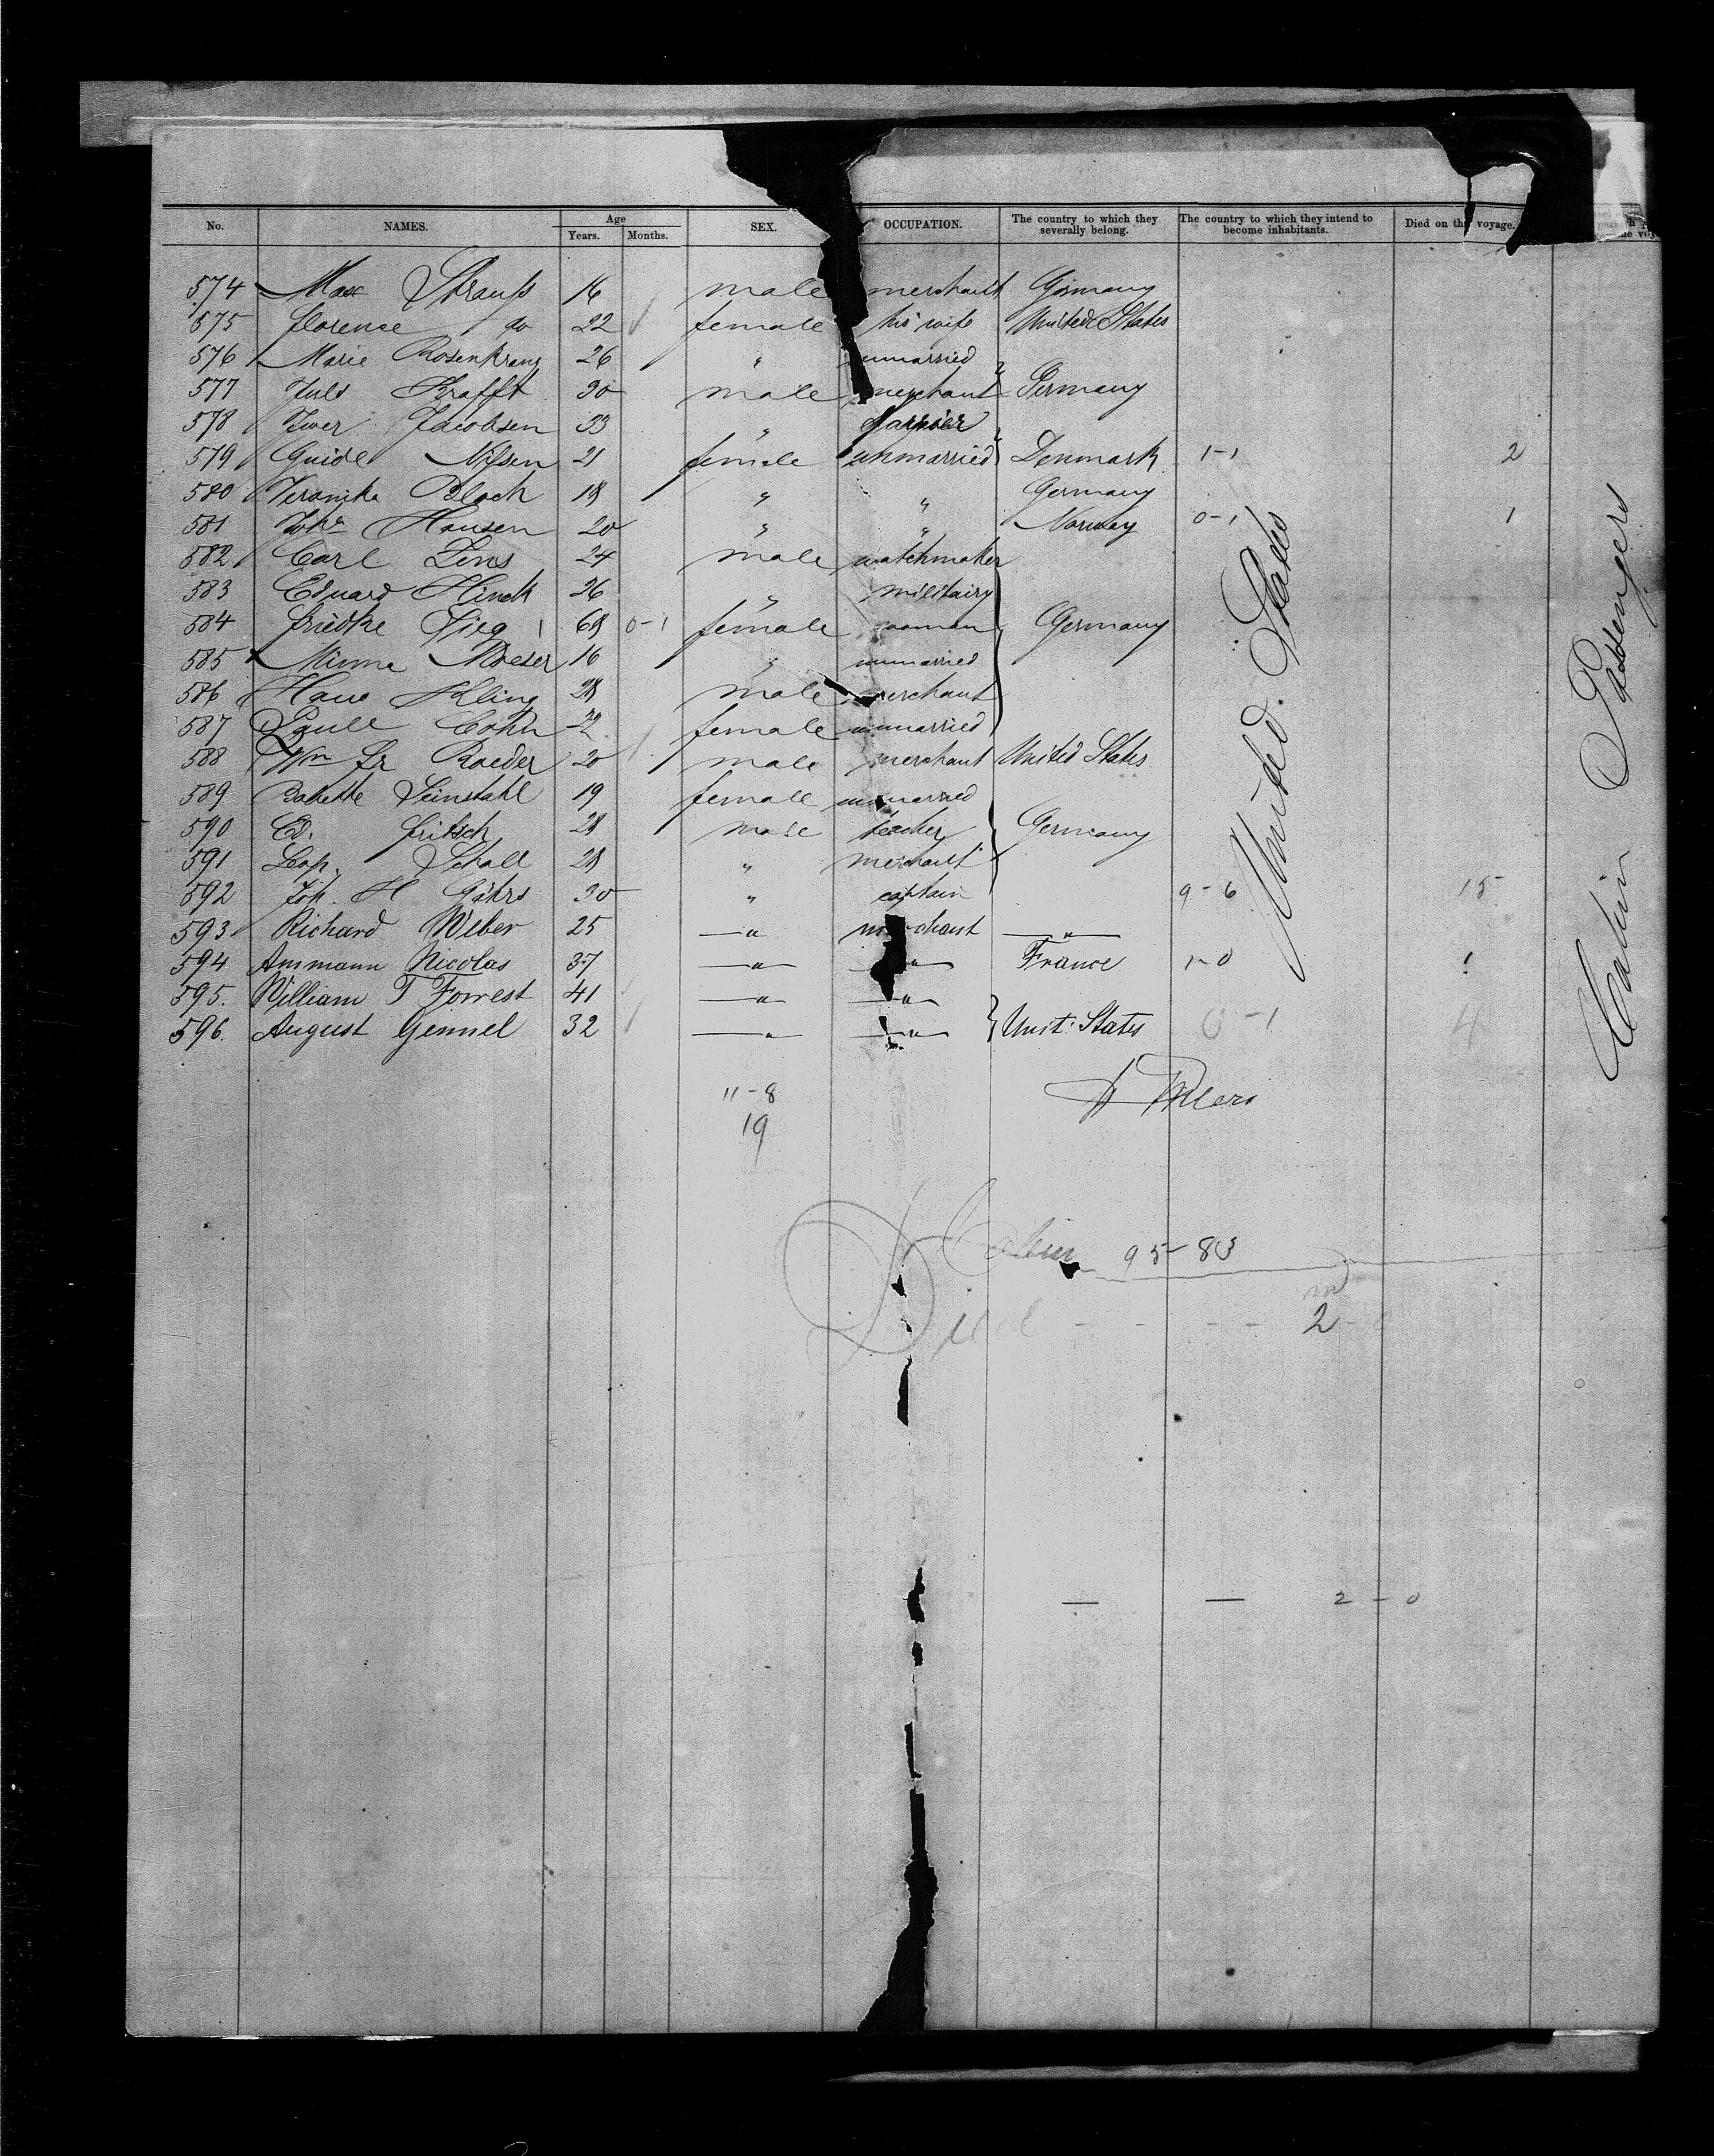 No. NAMES. Age Years. Months. SEX. OCCUPATION. The country to which they severally belong. The country to which they intend to become inhabitants. Died on the voyage.
574 Max Strauß 16 male merchant Germany
575 Florence do 22 female his wife United States
576 Marie Rosenkranz 26 " unmarried
577 Juls Krafft 30 male merchant Germany
578 Iwer Jacobsen 33 "
579 Guide 21 female unmarried Denmark 1-1 2
580 Veronika Bloch 18 " " Germany
581 Johe Hansen 20 " " Norway 0-1 1
582 Carl Lens 24 male watchmaker
583 Eduard Hinck 26 " militairy
584 Friedke 68 0-1 female woman Germany
585 Minna Moeser 16 " unmarried
586 Hans Kling 28 male merchant
587 Paull Cohn 22 female unmarried
588 Wm Fr Roeder 20 male merchant United States
589 Babette Leinstahl 19 female unmarried
590 Ed. Fritsch 28 male teacher Germany
591 Leop. Schall 28 " merchant
592 Joh. H 30 " captain 9-6 15
593 Richard Weber 25 " merchant "
594 Ammann Nicolas 37 " " France 1-0 1
595. William T Forrest 41 " "
596. August Gennel 32 " " Unit: States 0-1 4
United States
Cabin Passengers
11-8
19
Cabin 95-83
m
Died - - - - 2 -
— — 2 - 0